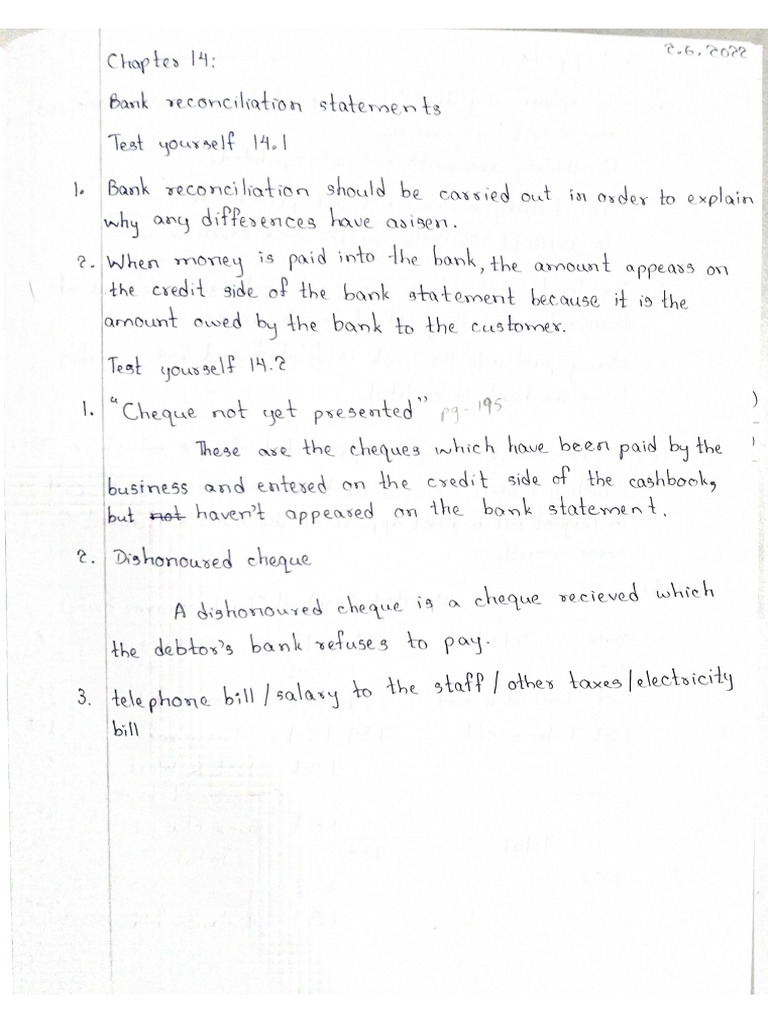 2.6.2022
Chapter 14:
Bank reconciliation statements
Test yourself 14.1
1. Bank reconciliation should be carried out in order to explain
why any differences have arisen.
2. When money is paid into the bank, the amount appears on
the credit side of the bank statement because it is the
amount owed by the bank to the customer.
Test yourself 14.2
1. "Cheque not yet presented" pg-195
These are the cheques which have been paid by the
business and entered on the credit side of the cashbook,
but not haven't appeared on the bank statement.
2. Dishonoured cheque
A dishonoured cheque is a cheque recieved which
the debtor's bank refuses to pay.
3. telephone bill/salary to the staff/other taxes/electricity
bill